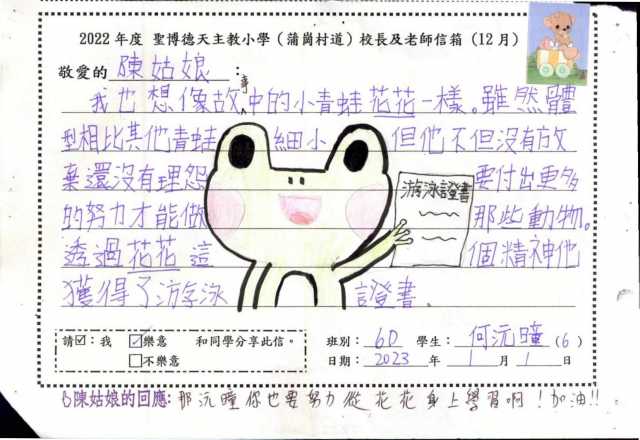 2022年度 聖博德天主教小學（蒲崗村道）校長及老師信箱（12月）
敬愛的陳姑娘：
我也想像故事中的小青蛙花花一樣。雖然體
型相比其他青蛙細小 但他不但沒有放
棄還沒有理怨 要付出更多
的努力才能做 那些動物。
透過花花這 個精神他
獲得了游泳 證書。
游泳證書
請☑：我 ☑樂意 和同學分享此信。 班別：6D 學生：何沅曈（6）
□不樂意 日期：2023年1月1日
陳姑娘的回應：那沅曈你也要努力從花花身上學習啊！加油!!